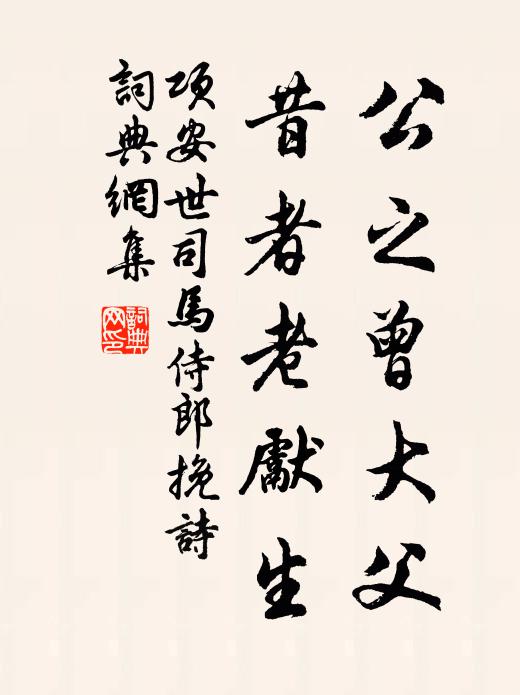 公之曾大父
昔者老獻生
項安世司馬侍郎挽詩
詞典網集
詞典
网印